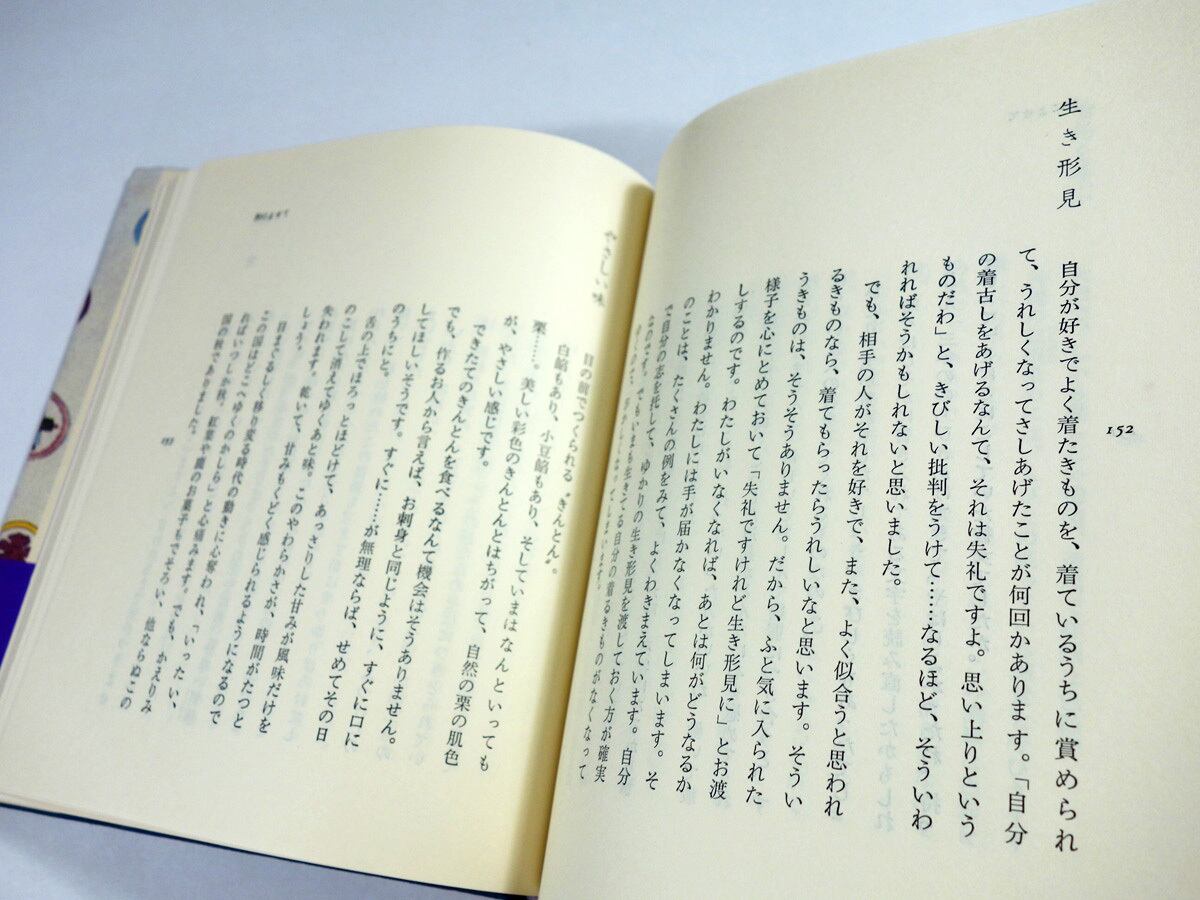 152
生き形見
自分が好きでよく着たきものを、着ているうちに賞められ
て、うれしくなってさしあげたことが何回かあります。「自分
の着古しをあげるなんて、それは失礼ですよ。思い上りという
ものだわ」と、きびしい批判をうけて……なるほど、そういわ
れればそうかもしれないと思いました。
でも、相手の人がそれを好きで、また、よく似合うと思われ
るきものなら、着てもらったらうれしいなと思います。そうい
うきものは、そうそうありません。だから、ふと気に入られた
様子を心にとめておいて「失礼ですけれど生き形見に」とお渡
しするのです。わたしがいなくなれば、あとは何がどうなるか
わかりません。わたしには手が届かなくなってしまいます。そ
のことは、たくさんの例をみて、よくわきまえています。自分
で自分の志を托して、ゆかりの生き形見を渡しておく方が確実
なのです。でもいまも生きてる自分の着るきものがなくなって
やさしい味
目の前でつくられる〝きんとん〟。
白餡もあり、小豆餡もあり、そしていまはなんといっても
栗……。美しい彩色のきんとんとはちがって、自然の栗の肌色
が、やさしい感じです。
できたてのきんとんを食べるなんて機会はそうありません。
でも、作るお人から言えば、お刺身と同じように、すぐに口に
してほしいそうです。すぐに……が無理ならば、せめてその日
のうちにと。
舌の上でほろっとほどけて、あっさりした甘みが風味だけを
のこして消えてゆくあと味。このやわらかさが、時間がたつと
失われます。乾いて、甘みもくどく感じられるようになるので
しょう。
目まぐるしく移り変る時代の動きに心奪われ、「いったい、
この国はどこへゆくのかしら」と心痛みます。でも、かえりみ
ればいつしか秋。紅葉や菌のお菓子もでそろい、他ならぬこの
国の秋でありました。
153